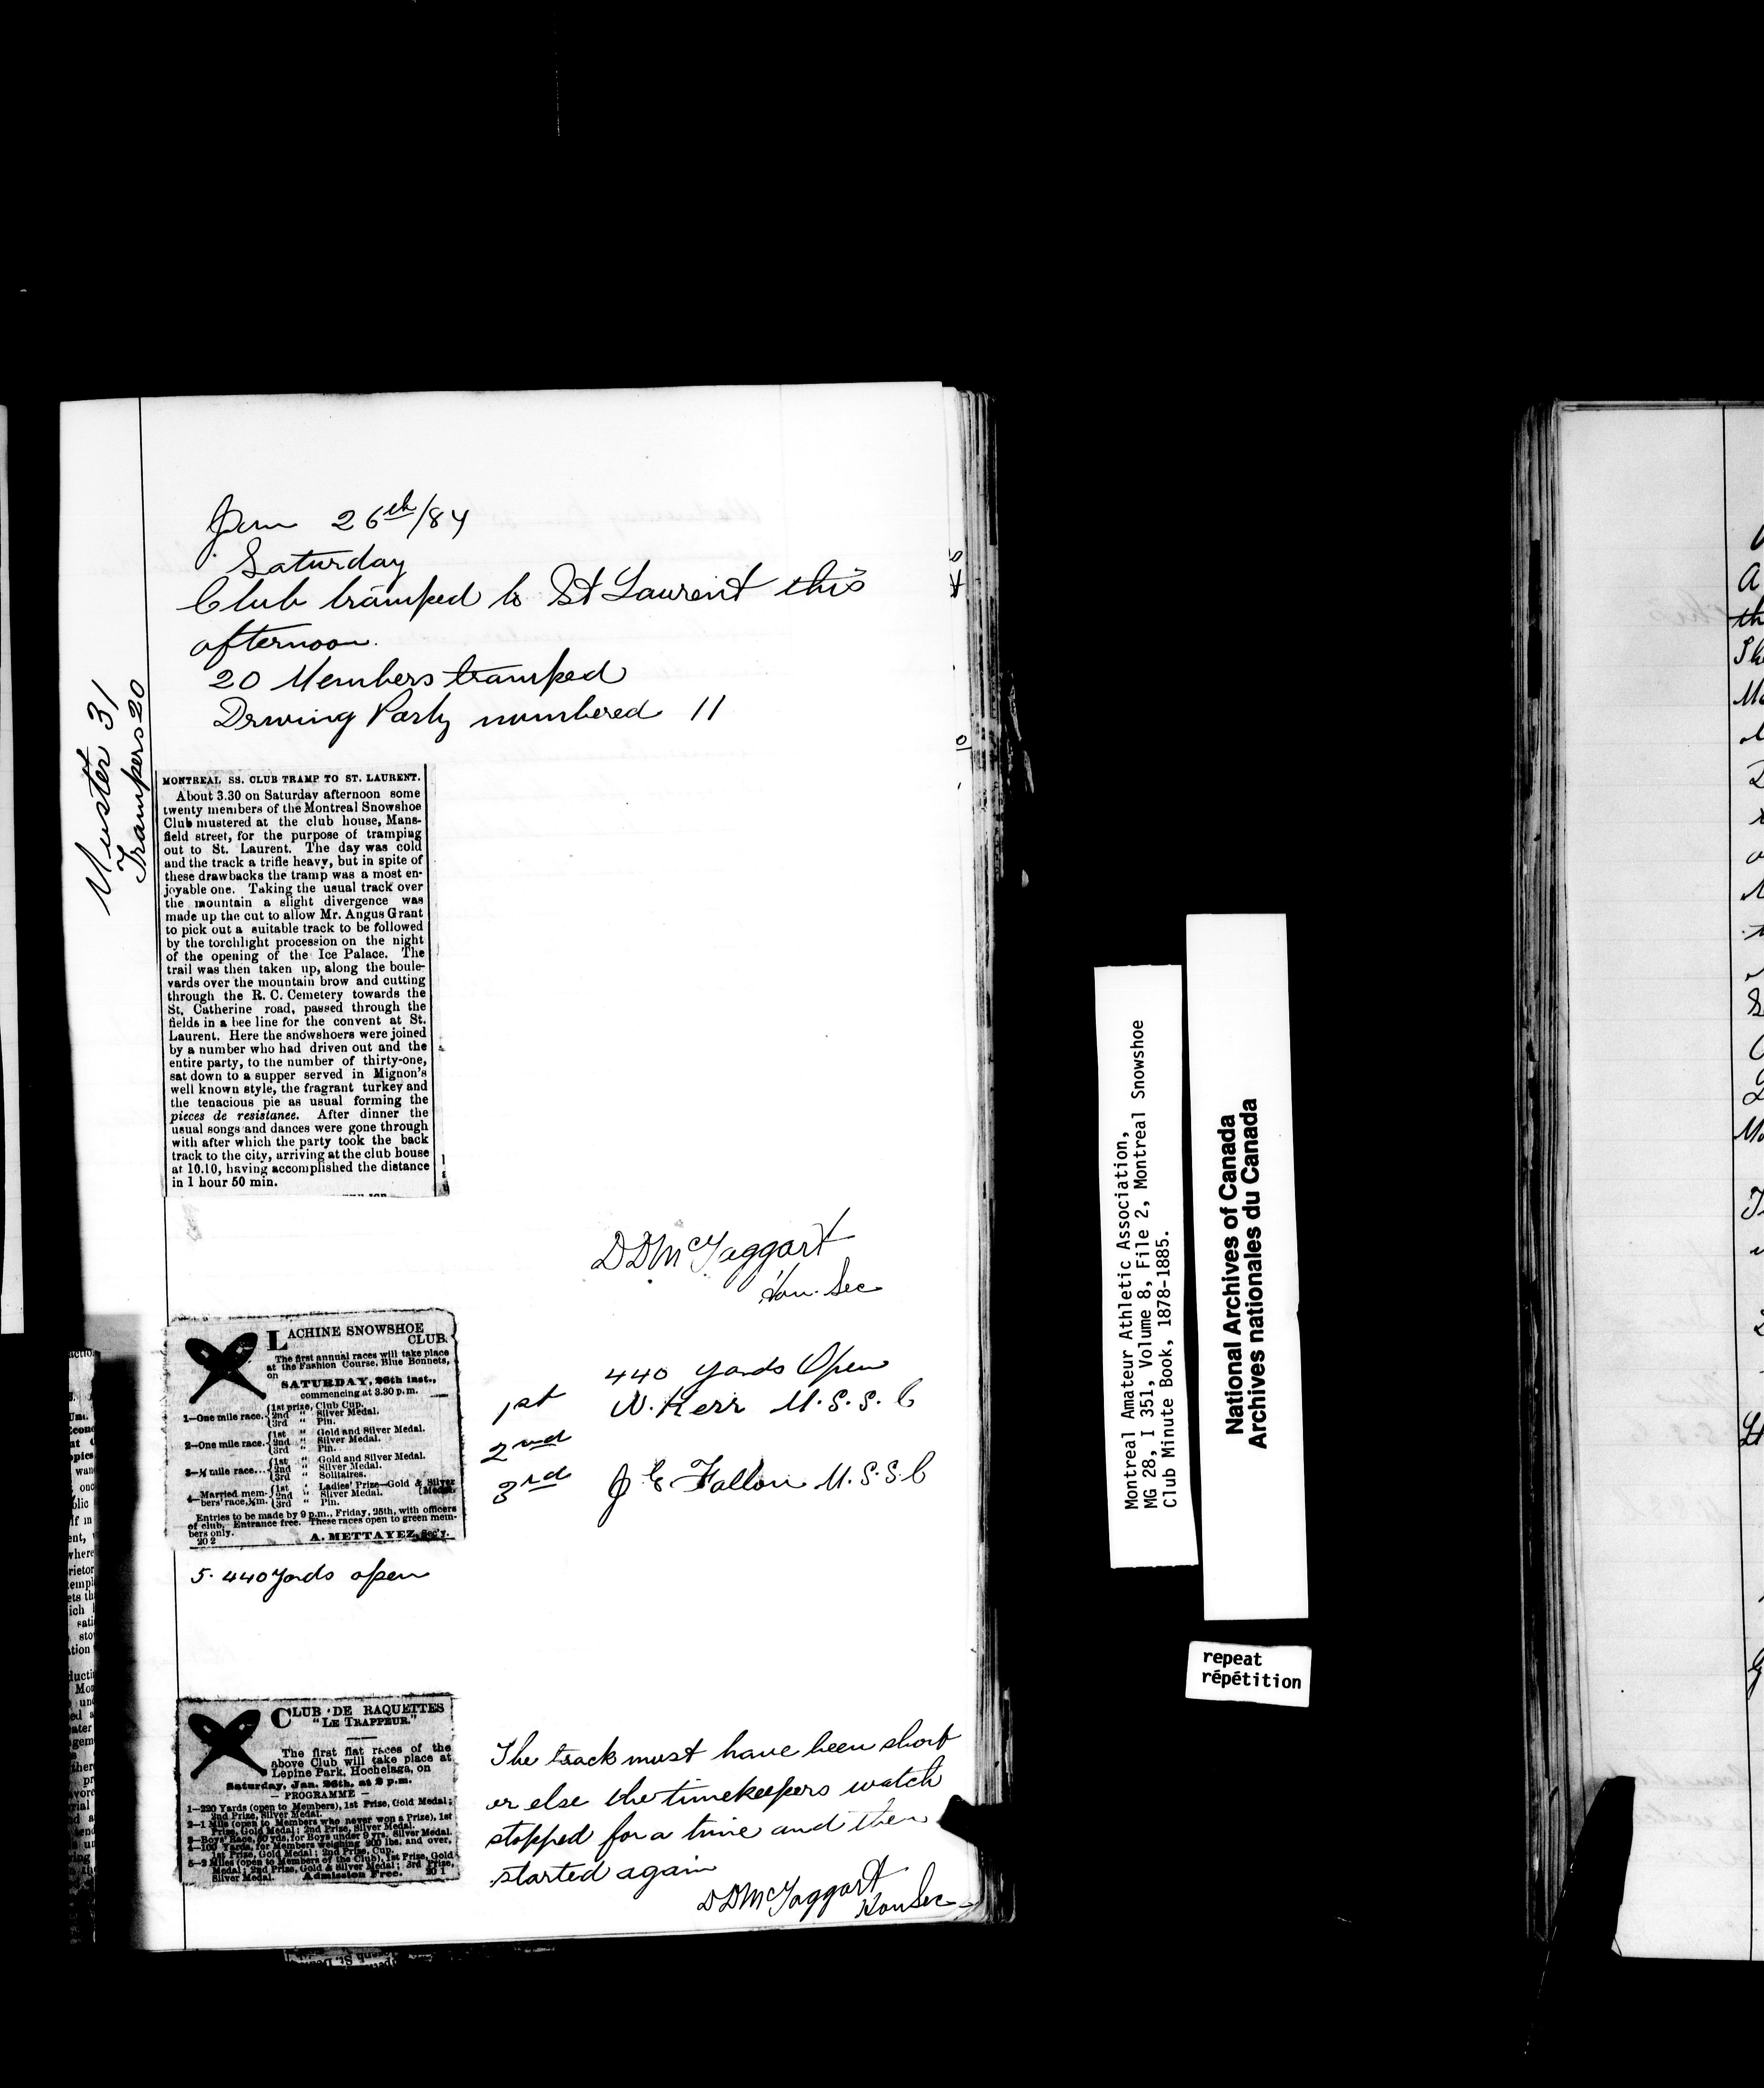 Jan 26th/84
Saturday
Club tramped to St Laurent this
afternoon.
20 Members tramped
Driving Party numbered 11
Muster 31
Trampers 20
MONTREAL SS. CLUB TRAMP TO ST. LAURENT.
About 3.30 on Saturday afternoon some
twenty members of the Montreal Snowshoe
Club mustered at the club house, Mans-
field street, for the purpose of tramping
out to St. Laurent. The day was cold
and the track a trifle heavy, but in spite of
these drawbacks the tramp was a most en-
joyable one. Taking the usual track over
the mountain a slight divergence was
made up the cut to allow Mr. Angus Grant
to pick out a suitable track to be followed
by the torchlight procession on the night
of the opening of the Ice Palace. The
trail was then taken up, along the boule-
vards over the mountain brow and cutting
through the R. C. Cemetery towards the
St. Catherine road, passed through the
fields in a bee line for the convent at St.
Laurent. Here the snowshoers were joined
by a number who had driven out and the
entire party, to the number of thirty-one,
sat down to a supper served in Mignon's
well known style, the fragrant turkey and
the tenacious pie as usual forming the
pieces de resistanee. After dinner the
usual songs and dances were gone through
with after which the party took the back
track to the city, arriving at the club house
at 10.10, having accomplished the distance
in 1 hour 50 min.
DDMcTaggart
Hon. Sec
LACHINE SNOWSHOE
CLUB.
The first annual races will take place
at the Fashion Course, Blue Bonnets,
on
SATURDAY, 26th inst.,
commencing at 3.30 p.m.
1—One mile race. 1st prize, Club Cup.
2nd " Silver Medal.
3rd " Pin.
2—One mile race. 1st " Gold and Silver Medal.
2nd " Silver Medal.
3rd " Pin.
3—½ mile race... 1st " Gold and Silver Medal.
2nd " Silver Medal.
3rd " Solitaires.
4—Married mem- 1st " Ladies' Prize—Gold & Silver
bers' race, ½m. 2nd " Silver Medal. [Medal.
3rd " Pin.
Entries to be made by 9 p.m., Friday, 25th, with officers
of club. Entrance free. These races open to green mem-
bers only.
20 2 A. METTAYEZ, Sec'y.
5. 440 yards open
440 yards Open
1st W. Kerr M.S.S.C
2nd
3rd J E Fallon M.S.S.C
CLUB DE RAQUETTES
"LE TRAPPEUR."
The first flat races of the
above Club will take place at
Lepine Park, Hochelaga, on
Saturday, Jan. 26th, at 2 p.m.
— PROGRAMME —
1—220 Yards (open to Members), 1st Prize, Gold Medal;
2nd Prize, Silver Medal.
2—1 Mile (open to Members who never won a Prize), 1st
Prize, Gold Medal; 2nd Prize, Silver Medal.
3—Boys' Race, 80 yds, for Boys under 9 yrs. Silver Medal.
4—100 Yards, for Members weighing 200 lbs. and over,
1st Prize, Gold Medal; 2nd Prize, Cup.
5—2 Miles (open to Members of the Club), 1st Prize, Gold
Medal; 2nd Prize, Gold & Silver Medal; 3rd Prize,
Silver Medal. Admission Free. 20 1
The track must have been short
or else the timekeepers watch
stopped for a time and then
started again
DDMcTaggart
Hon Sec
Montreal Amateur Athletic Association,
MG 28, I 351, Volume 8, File 2, Montreal Snowshoe
Club Minute Book, 1878-1885.
National Archives of Canada
Archives nationales du Canada
repeat
répétition